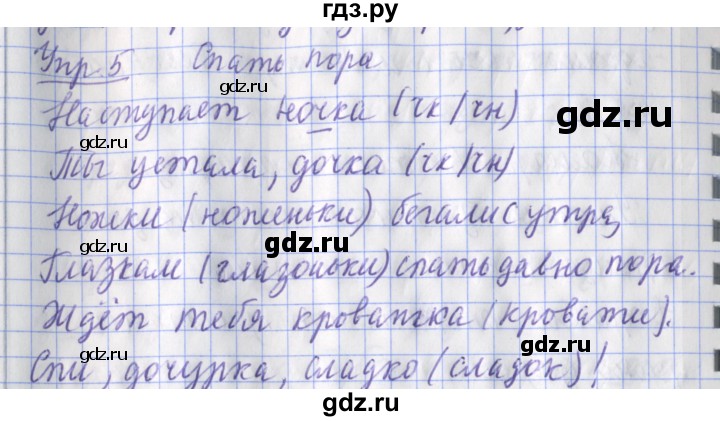 гдз.ру
Упр.5 Спать пора
gdz.ru
Наступает ночка (чк/чн)
gdz.ru
gdz.ru
Ты устала, дочка (чк/чн)
Ножки (ноженьки) бегали с утра,
gdz.ru
gdz.ru
Глазкам (глазоньки) спать давно пора.
Ждёт тебя кроватка (кровати).
gdz.ru
Спи, дочурка, сладко (сладок)!
gdz.ru
gdz.ru